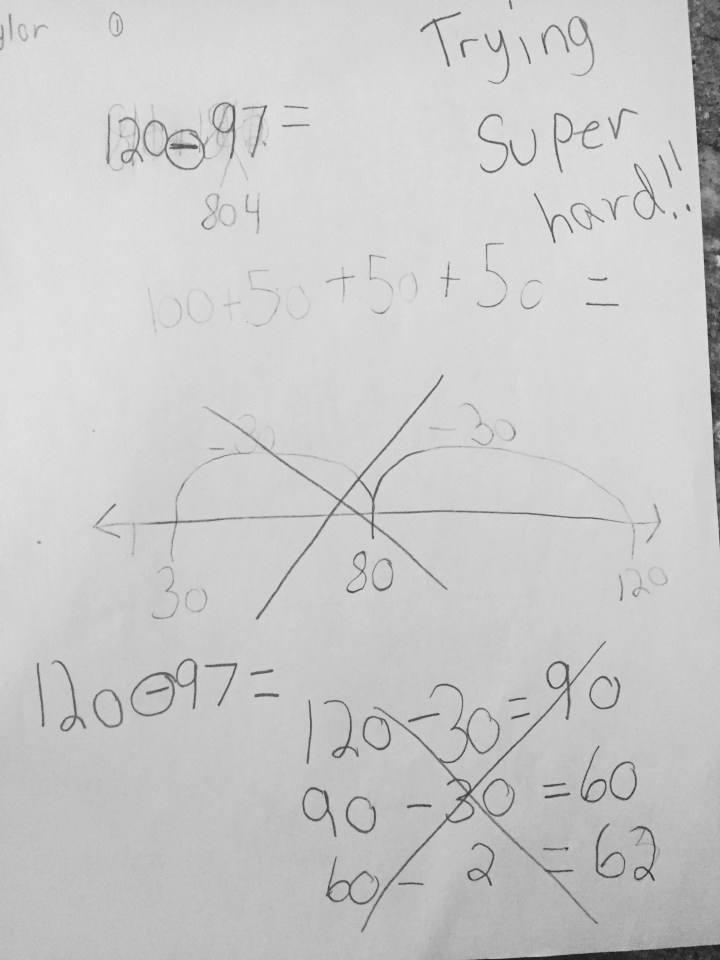 ylor ①
Trying
Super
hard!!
120-97=
804
100+50+50+50=
-30 -30
30 80 120
120-97=
120-30=90
90-30=60
60-2=62